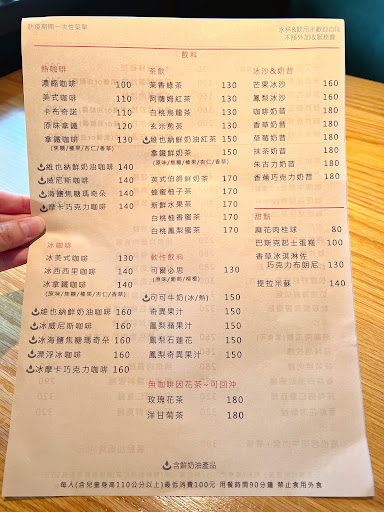 防疫期間一次性菜單
水杯&飲用水歡迎自取
不額外加收服務費
飲料
熱咖啡
濃縮咖啡 100
美式咖啡 110
卡布奇諾 110
原味拿鐵 120
拿鐵咖啡 130
(原味/焦糖/榛果/杏仁/香草)
維也納鮮奶油咖啡 140
威尼斯咖啡 140
海鹽焦糖瑪奇朵 140
摩卡巧克力咖啡 140
冰咖啡
冰美式咖啡 130
冰西西里咖啡 140
冰拿鐵咖啡 140
(原味/焦糖/榛果/杏仁/香草)
維也納鮮奶油咖啡 160
冰威尼斯咖啡 160
冰海鹽焦糖瑪奇朵 160
漂浮冰咖啡 160
冰摩卡巧克力咖啡 160
茶飲
茉香綠茶 130
阿薩姆紅茶 130
白桃烏龍茶 130
玄米煎茶 130
維也納鮮奶油紅茶 150
拿鐵鮮奶茶 150
英式伯爵鮮奶茶 170
蜂蜜柚子茶 170
新鮮水果茶 170
白桃柚香獨茶 170
白桃鳳梨獨茶 170
軟性飲料
可爾必思 130
可可牛奶(冰/熱) 150
奇異果汁 150
鳳梨蘋果汁 150
鳳梨石蓮花 150
鳳梨奇異果汁 150
無咖啡因花茶~可回沖
玫瑰花茶 180
洋甘菊茶 180
冰沙&奶昔
芒果冰沙 160
鳳梨冰沙 160
咖啡奶昔 180
香草奶昔 180
草莓奶昔 180
抹茶奶昔 180
朱古力奶昔 180
香蕉巧克力奶昔 180
甜點
麻花肉桂球 80
巴斯克起士蛋糕 100
香草冰淇淋佐
巧克力布朗尼 130
提拉米蘇 140
含鮮奶油產品
每人(含兒童身高110公分以上)最低消費100元 用餐時間90分鐘 禁止食用外食